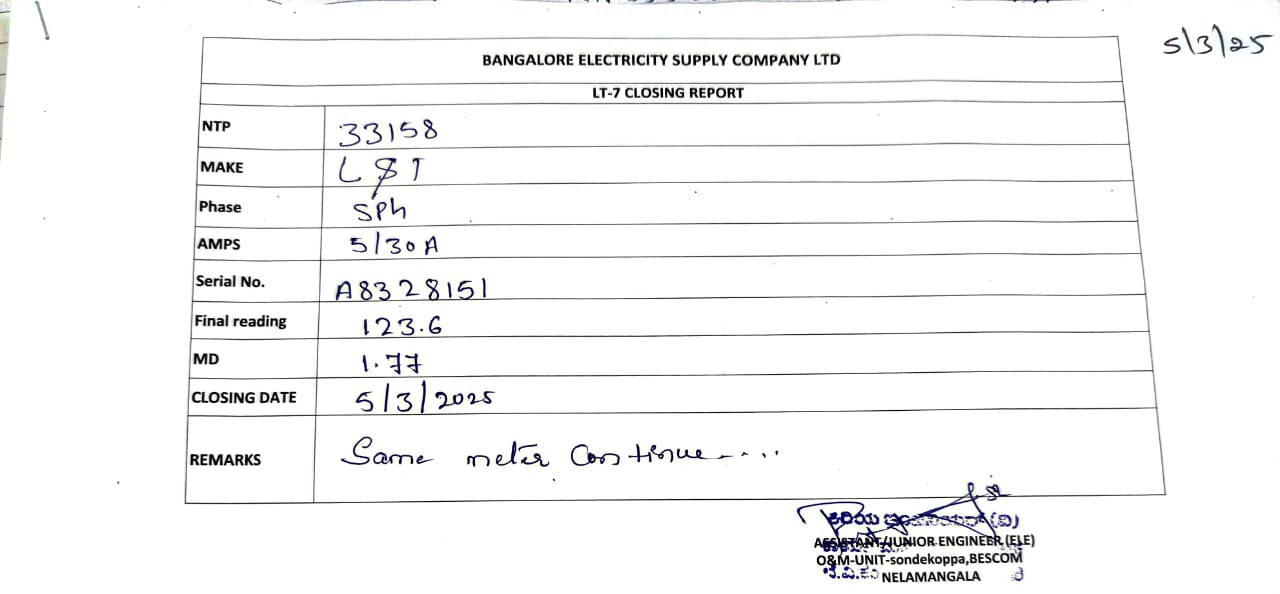 5/3/25
BANGALORE ELECTRICITY SUPPLY COMPANY LTD
LT-7 CLOSING REPORT
NTP 33158
MAKE L&T
Phase SPh
AMPS 5/30A
Serial No. A8328151
Final reading 123.6
MD 1.77
CLOSING DATE 5/3/2025
REMARKS Same meter Continue.....
ಕಿರಿಯ (ವಿ)
ASSISTANT/JUNIOR ENGINEER (ELE)
O&M-UNIT-sondekoppa,BESCOM
NELAMANGALA